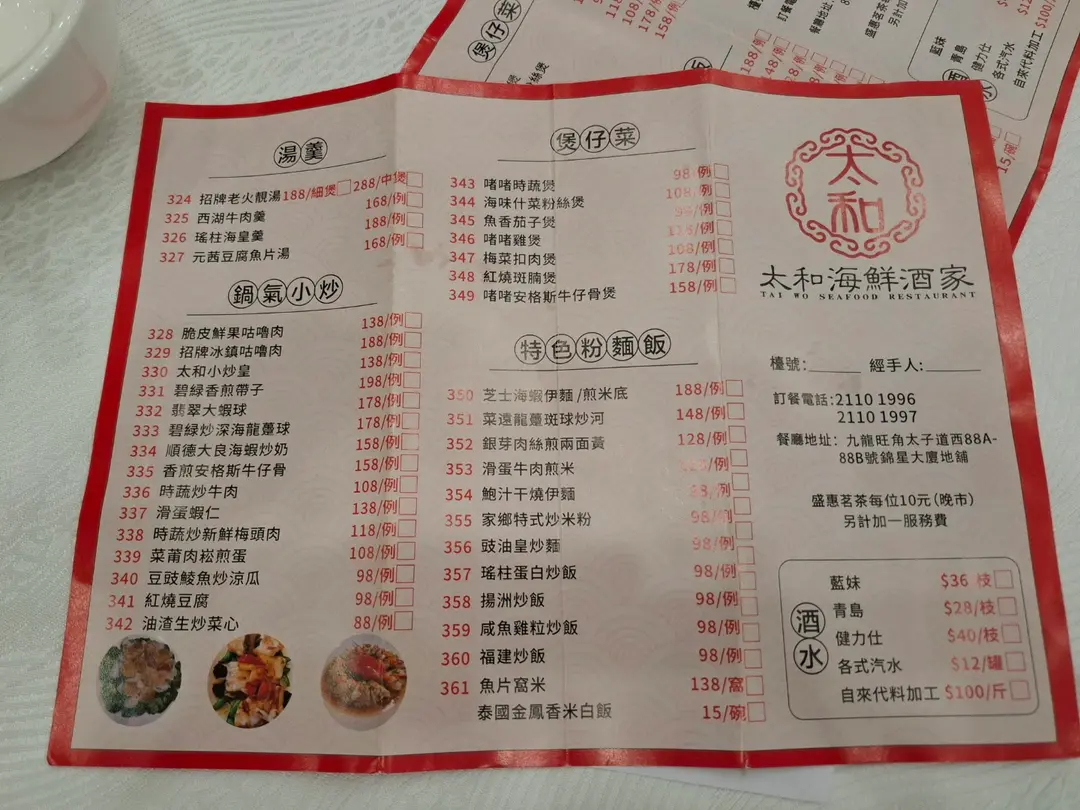 湯羹
324 招牌老火靚湯 188/細煲 288/中煲
325 西湖牛肉羹 168/例
326 瑤柱海皇羹 188/例
327 元茜豆腐魚片湯 168/例
鍋氣小炒
328 脆皮鮮果咕嚕肉 138/例
329 招牌冰鎮咕嚕肉 188/例
330 太和小炒皇 138/例
331 碧綠香煎帶子 198/例
332 翡翠大蝦球 178/例
333 碧綠炒深海龍躉球 178/例
334 順德大良海蝦炒奶 158/例
335 香煎安格斯牛仔骨 158/例
336 時蔬炒牛肉 108/例
337 滑蛋蝦仁 138/例
338 時蔬炒新鮮梅頭肉 118/例
339 菜莆肉崧煎蛋 108/例
340 豆豉鯪魚炒涼瓜 98/例
341 紅燒豆腐 98/例
342 油渣生炒菜心 88/例
煲仔菜
343 啫啫時蔬煲 98/例
344 海味什菜粉絲煲 108/例
345 魚香茄子煲 98/例
346 啫啫雞煲 118/例
347 梅菜扣肉煲 108/例
348 紅燒斑腩煲 178/例
349 啫啫安格斯牛仔骨煲 158/例
特色粉麵飯
350 芝士海蝦伊麵/煎米底 188/例
351 菜遠龍躉斑球炒河 148/例
352 銀芽肉絲煎兩面黃 128/例
353 滑蛋牛肉煎米 /例
354 鮑汁干燒伊麵 /例
355 家鄉特式炒米粉 98/例
356 豉油皇炒麵 98/例
357 瑤柱蛋白炒飯 98/例
358 揚洲炒飯 98/例
359 咸魚雞粒炒飯 98/例
360 福建炒飯 98/例
361 魚片窩米 138/窩
泰國金鳳香米白飯 15/碗
太和
太和海鮮酒家
TAI WO SEAFOOD RESTAURANT
檯號:______ 經手人:______
訂餐電話:2110 1996
2110 1997
餐廳地址: 九龍旺角太子道西88A-
88B號錦星大廈地舖
盛惠茗茶每位10元(晚市)
另計加一服務費
酒水
藍妹 $36 枝
青島 $28/枝
健力仕 $40/枝
各式汽水 $12/罐
自來代料加工 $100/斤
煲仔菜
158/例
盛惠茗茶
另計加
藍妹
青島
健力仕
各式汽水
自來代料加工 $100/
酒水